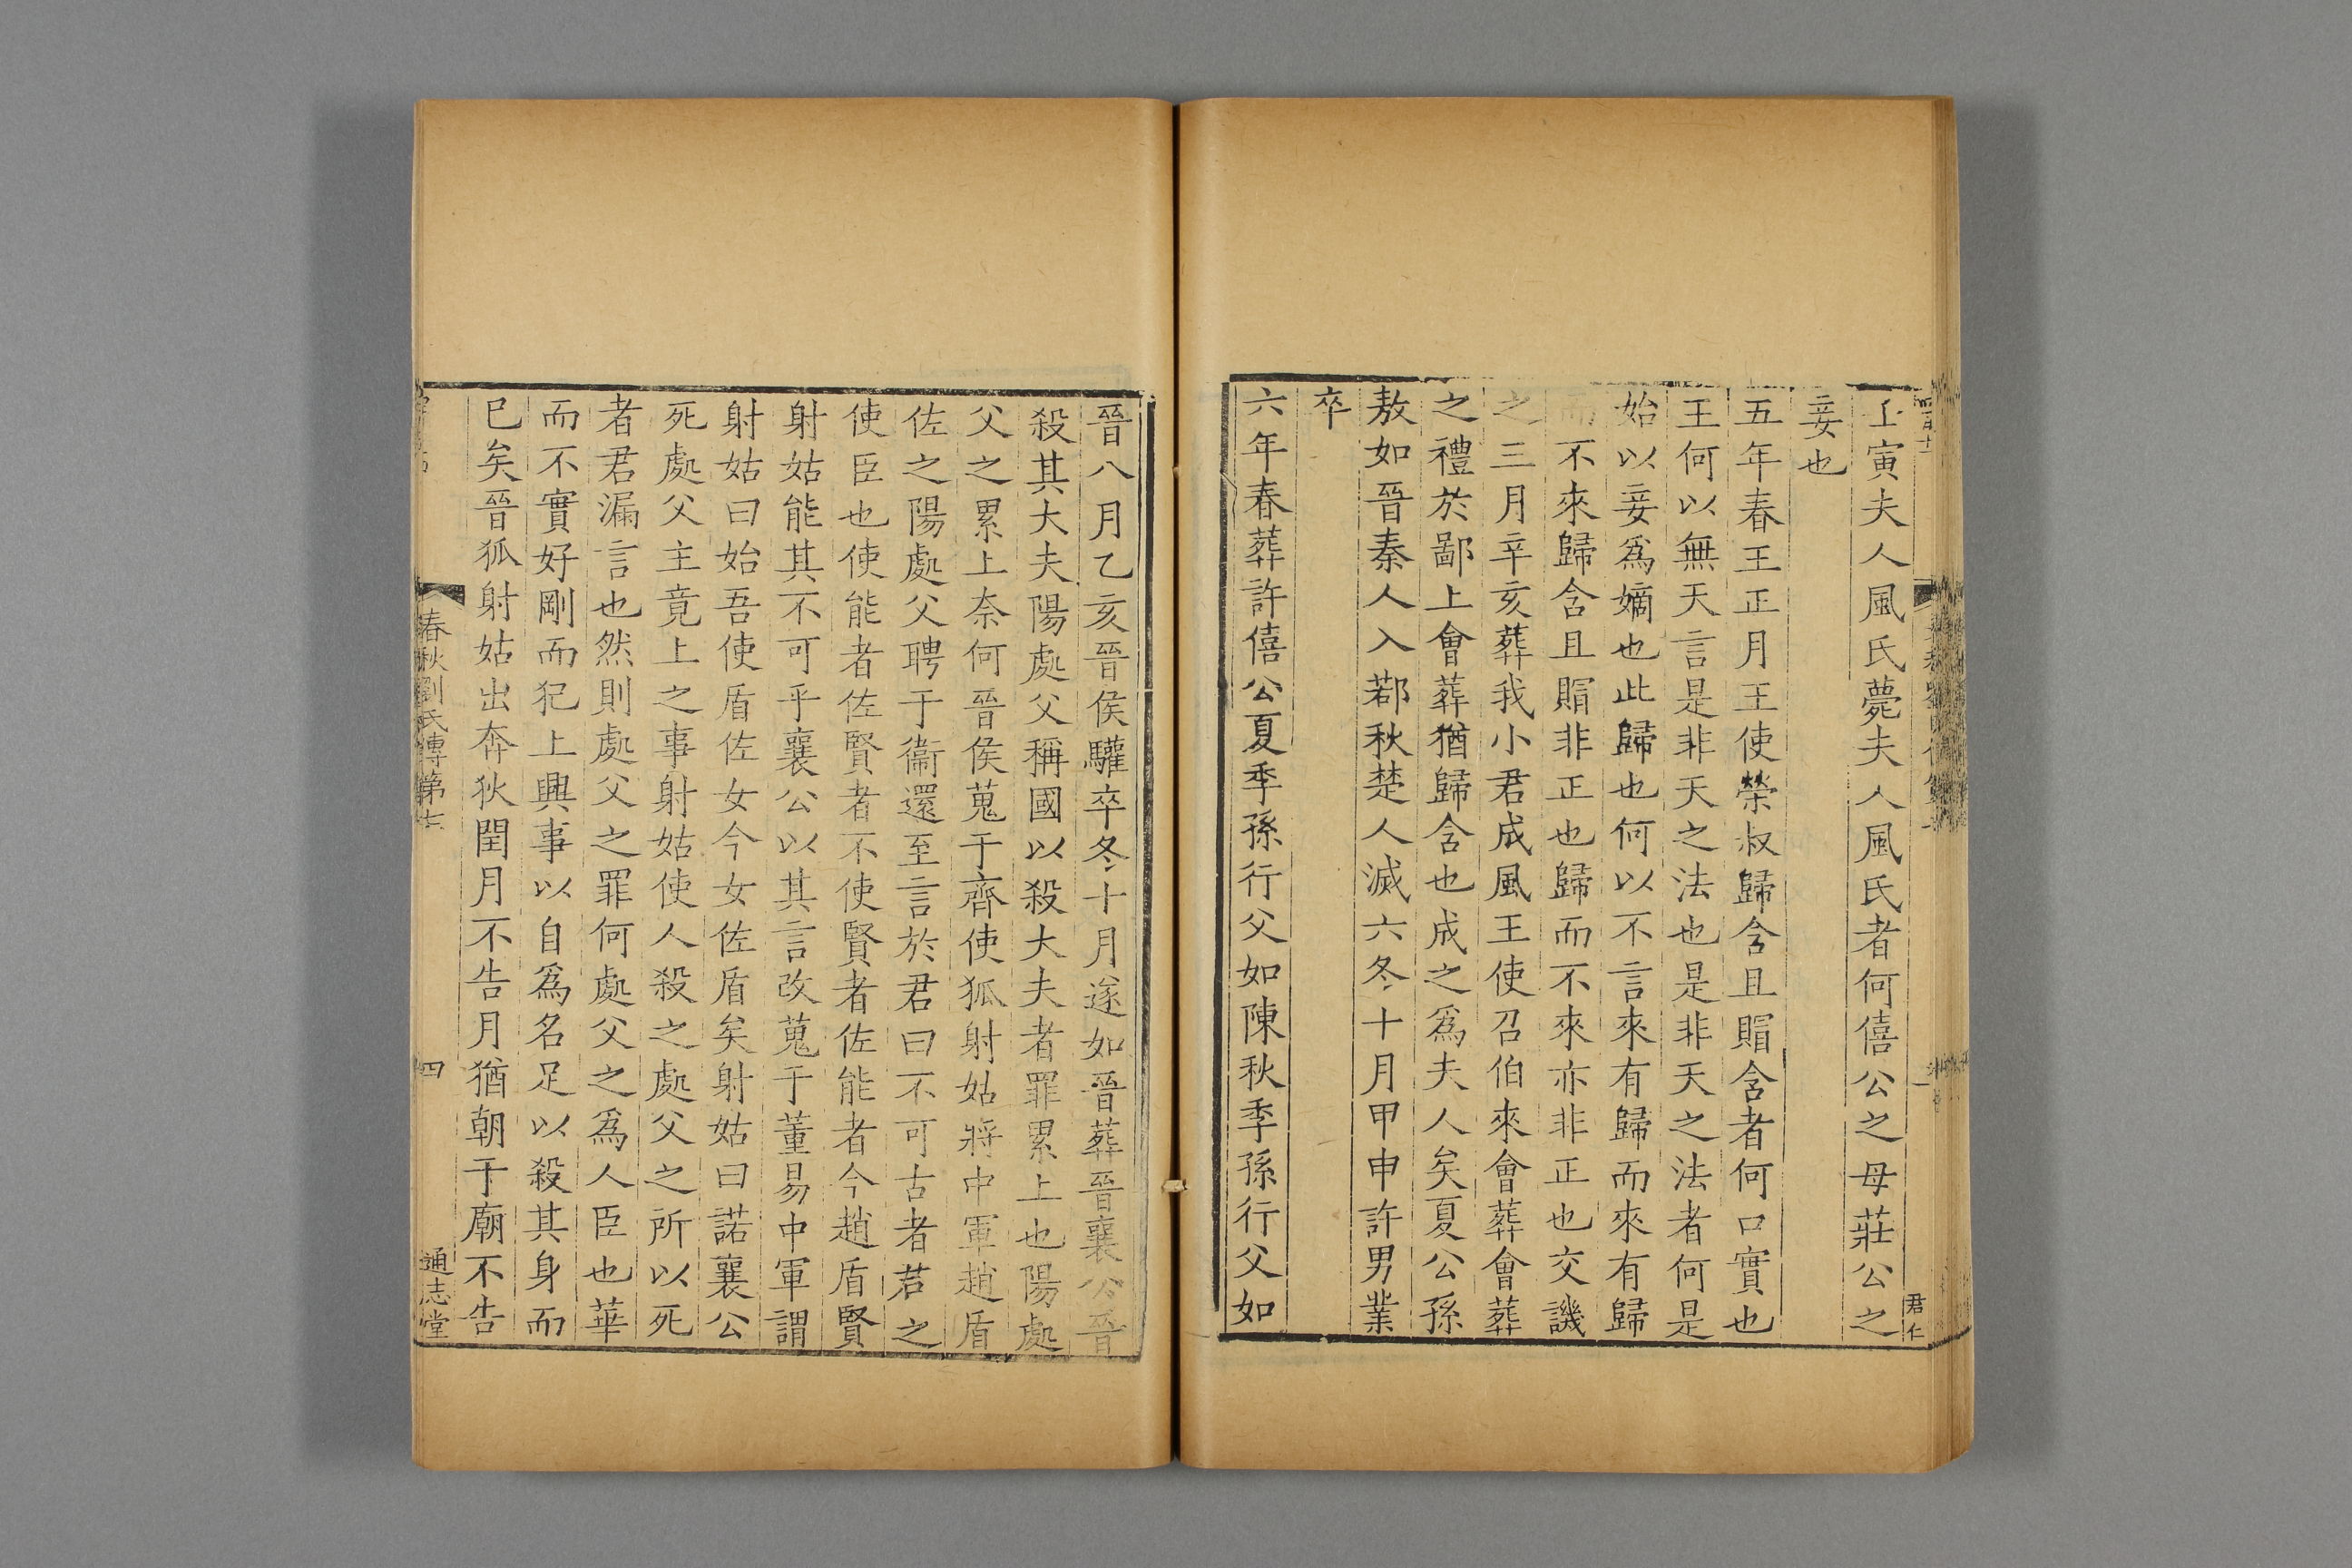 壬寅夫人風氏薨夫人風氏者何僖公之母莊公之
妾也
五年春王正月王使榮叔歸含且賵含者何口實也
王何以無天言是非天之法也是非天之法者何是
始以妾爲嫡也此歸也何以不言來有歸而來有歸
而不來歸含且賵非正也歸而不來亦非正也交譏
之三月辛亥葬我小君成風王使召伯來會葬會葬
之禮於鄙上會葬猶歸含也成之爲夫人矣夏公孫
敖如晉秦人入鄀秋楚人滅六冬十月甲申許男業
卒
六年春葬許僖公夏季孫行父如陳秋季孫行父如
君仁
晉八月乙亥晉侯驩卒冬十月遂如晉葬晉襄公晉
殺其大夫陽處父稱國以殺大夫者罪累上也陽處
父之累上奈何晉侯蒐于齊使狐射姑將中軍趙盾
佐之陽處父聘于衞還至言於君曰不可古者君之
使臣也使能者佐賢者不使賢者佐能者今趙盾賢
射姑能其不可乎襄公以其言改蒐于董易中軍謂
射姑曰始吾使盾佐女今女佐盾矣射姑曰諾襄公
死處父主竟上之事射姑使人殺之處父之所以死
者君漏言也然則處父之罪何處父之爲人臣也華
而不實好剛而犯上興事以自爲名足以殺其身而
巳矣晉狐射姑出奔狄閏月不告月猶朝于廟不告
春秋劉氏傳第七
四
通志堂